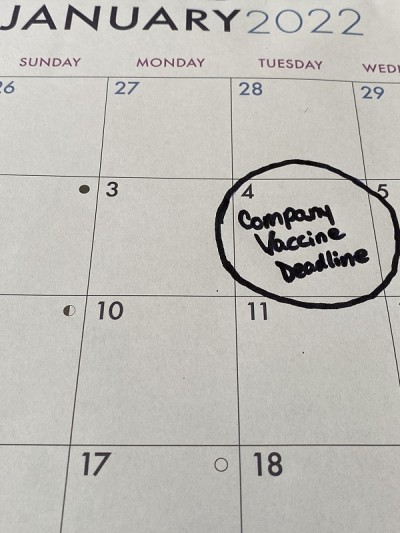 JANUARY 2022
SUNDAY MONDAY TUESDAY
26 27 28 29
3 4 5
Company
Vaccine
Deadline
10 11
17 18